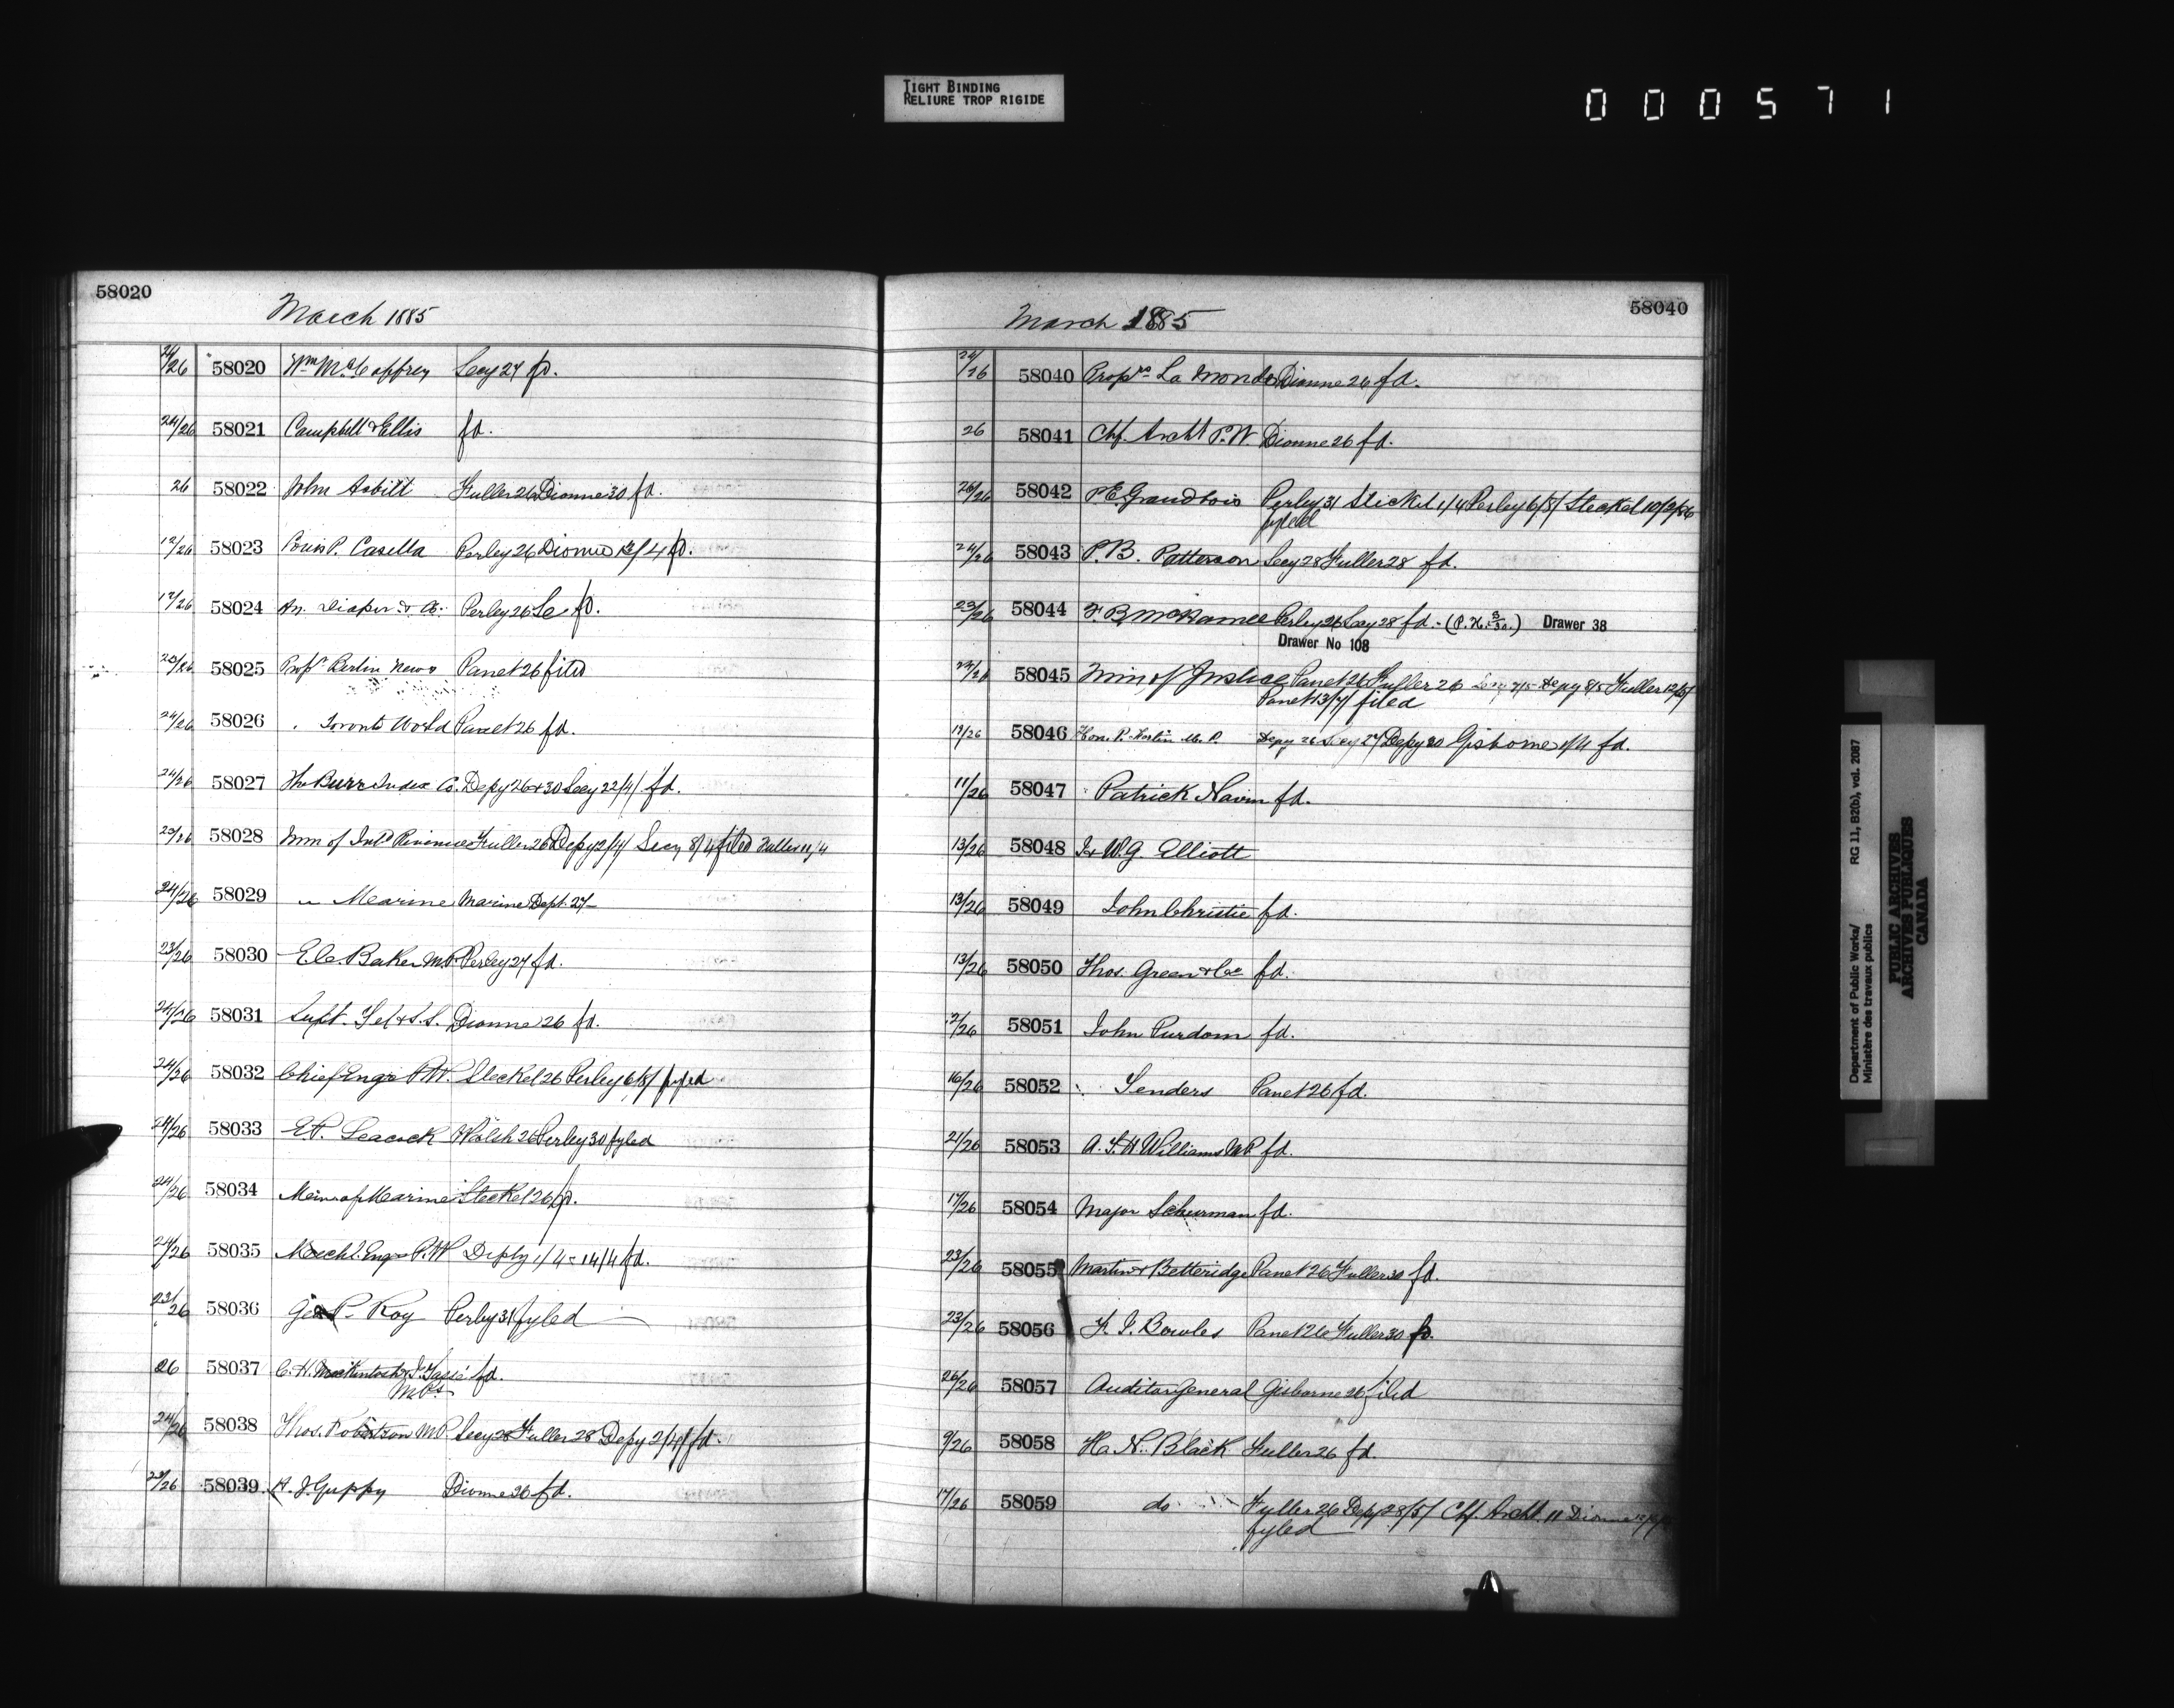 TIGHT BINDING
RELIURE TROP RIGIDE
000571
58020
March 1885
24/26 58020 Wm McCaffrey Secy 27 fd.
24/26 58021 Campbell & Ellis fd.
26 58022 John Asbitt Fuller 26 Dionne 30 fd.
12/26 58023 Louis P. Casella Perley 26 Dionne 13/4 fd.
12/26 58024 Draper & Co. Perley 26 fd.
25/26 58025 Propr Berlin News Panet 26 filed
24/26 58026 " Toronto World Panet 26 fd.
24/26 58027 The Burr Index Co. Depy 26 & 30 Secy 22/4/ fd.
25/26 58028 Min of Intd Revenue Fuller 26 Depy 2/4/ Secy 8/4 filed Fuller 11/4
24/26 58029 " Marine Marine Dept. 27
23/26 58030 E. C. Baker M.P. Perley 27 fd.
24/26 58031 Supt. Tel & S.S. Dionne 26 fd.
24/26 58032 Chief Engr P.W. Steckel 26 Perley 6/8/ fyled
24/26 58033 E.P. Leacock Walsh 26 Perley 30 fyled
24/26 58034 Min of Marine Steckel 26 fd.
24/26 58035 Mechl. Engr P.W. Deply 1/4 = 14/4 fd.
23/26 58036 Geo P. Roy Perley 31 fyled
26 58037 C. H. Mackintosh & J. Tassé fd.
M.Ps
24/26 58038 Thos. Robertson M.P. Secy 28 Fuller 28 Depy 2/4/ fd.
23/26 58039 H. J. Guppy Dionne 26 fd.
March 1885
58040
24/26 58040 Proprs La Monde Dionne 26 fd.
26 58041 Chf. Archt P.W. Dionne 26 fd.
26/26 58042 P.E. Grandbois Perley 31 Steckel 1/4 Perley 6/8/ Steckel 10/2/86
fyled
24/26 58043 P.B. Patterson Secy 28 Fuller 28 fd.
23/26 58044 F.B. McNamee Perley 26 Secy 28 fd. - Drawer 38
Drawer No 108
58045 Min of Justice Panet 26 Fuller 26 Secy 7/5 Depy 8/5 Fuller 12/5/
Panet 13/7/ filed
19/26 58046 Hon. P. M. P. Depy 26 Secy 27 Depy 30 Gisborne fd.
11/26 58047 Patrick Navin fd.
13/26 58048 J & W.G. Elliott
13/26 58049 John Christie fd.
13/26 58050 Thos. Green & Co fd.
2/26 58051 John Purdom fd.
16/26 58052 Tenders Panet 26 fd.
21/26 58053 A. T. H. Williams M.P. fd.
17/26 58054 Major Schurman fd.
23/26 58055 Martin & Betteridge Panet 26 Fuller 30 fd.
23/26 58056 F. J. Bowles Panet 26 Fuller 30 fd.
26/26 58057 Auditor General Gisborne 26 filed
9/26 58058 H. N. Black Fuller 26 fd.
17/26 58059 do Fuller 26 Depy 28/5/ Chf. Archt. 11 Dionne
fyled
Department of Public Works/
Ministère des travaux publics
RG 11, B2(b), vol. 2087
PUBLIC ARCHIVES
ARCHIVES PUBLIQUES
CANADA